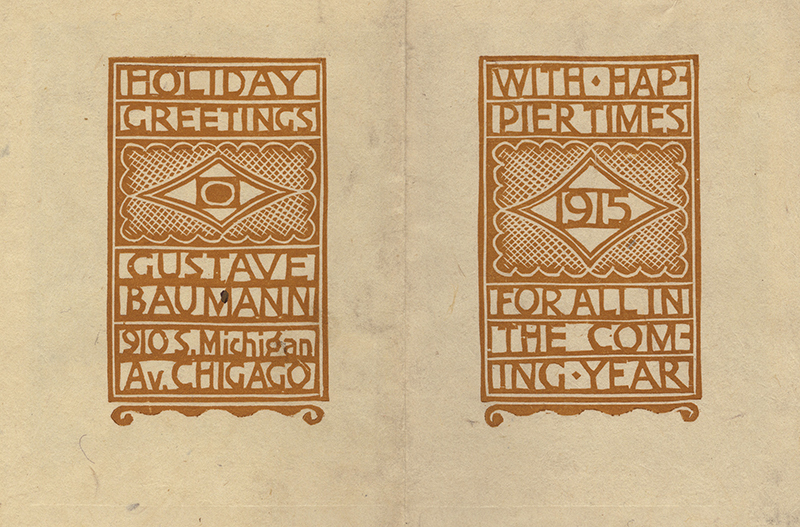 HOLIDAY
GREETINGS
O
GUSTAVE
BAUMANN
910 S. Michigan
Av. CHIGAGO
WITH · HAP-
PIER TIMES
1915
FOR ALL IN
THE COM-
ING · YEAR